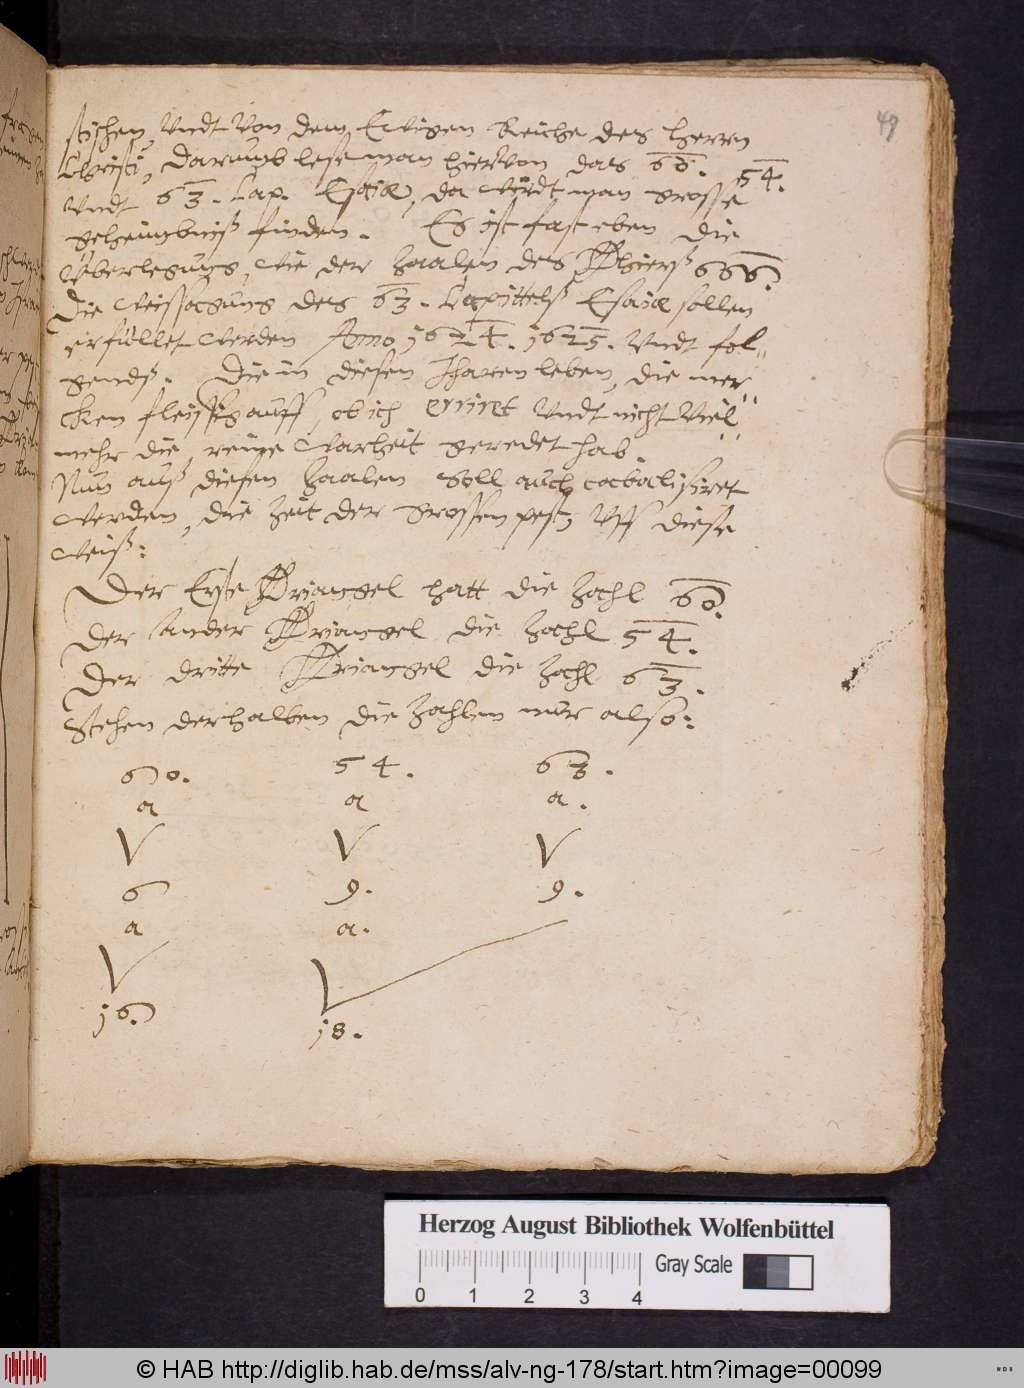 49
stischen, Vndt Von dem Ewigen Reiche des Herrn
Christi, darumb lese man hiervon das 60. 54.
Vndt 63. Cap. Esaiæ, da würdt man grosse
geheimbniß finden. Es ist fast eben die
Vberlegung, wie der Zaalen des Thierß 666.
Die Weissagung des 63. Capittelß Esaiæ sollen
erfüllet werden Anno 1624. 1625. Vndt fol"
gendß. Die in diesen Jharen leben, die mer"
cken fleissig auff, ob ich erriret Vndt nicht Viel"
mehr die reine Warheit geredet hab.
Nun auß diesen Zaalen soll auch cabalisiret
werden, die Zeit der grossen pest, Vff diese
Weiß:
Der Erste Triangel hatt die Zahl 60.
Der Ander Triangel die Zahl 54.
Der dritte Triangel die Zahl 63.
Stehen derhalben die Zahlen nur also:
60. 54. 63.
a a a.
V V V
6 9. 9.
a a.
V V
16. 18.
Herzog August Bibliothek Wolfenbüttel
Gray Scale
0 1 2 3 4
© HAB http://diglib.hab.de/mss/alv-ng-178/start.htm?image=00099